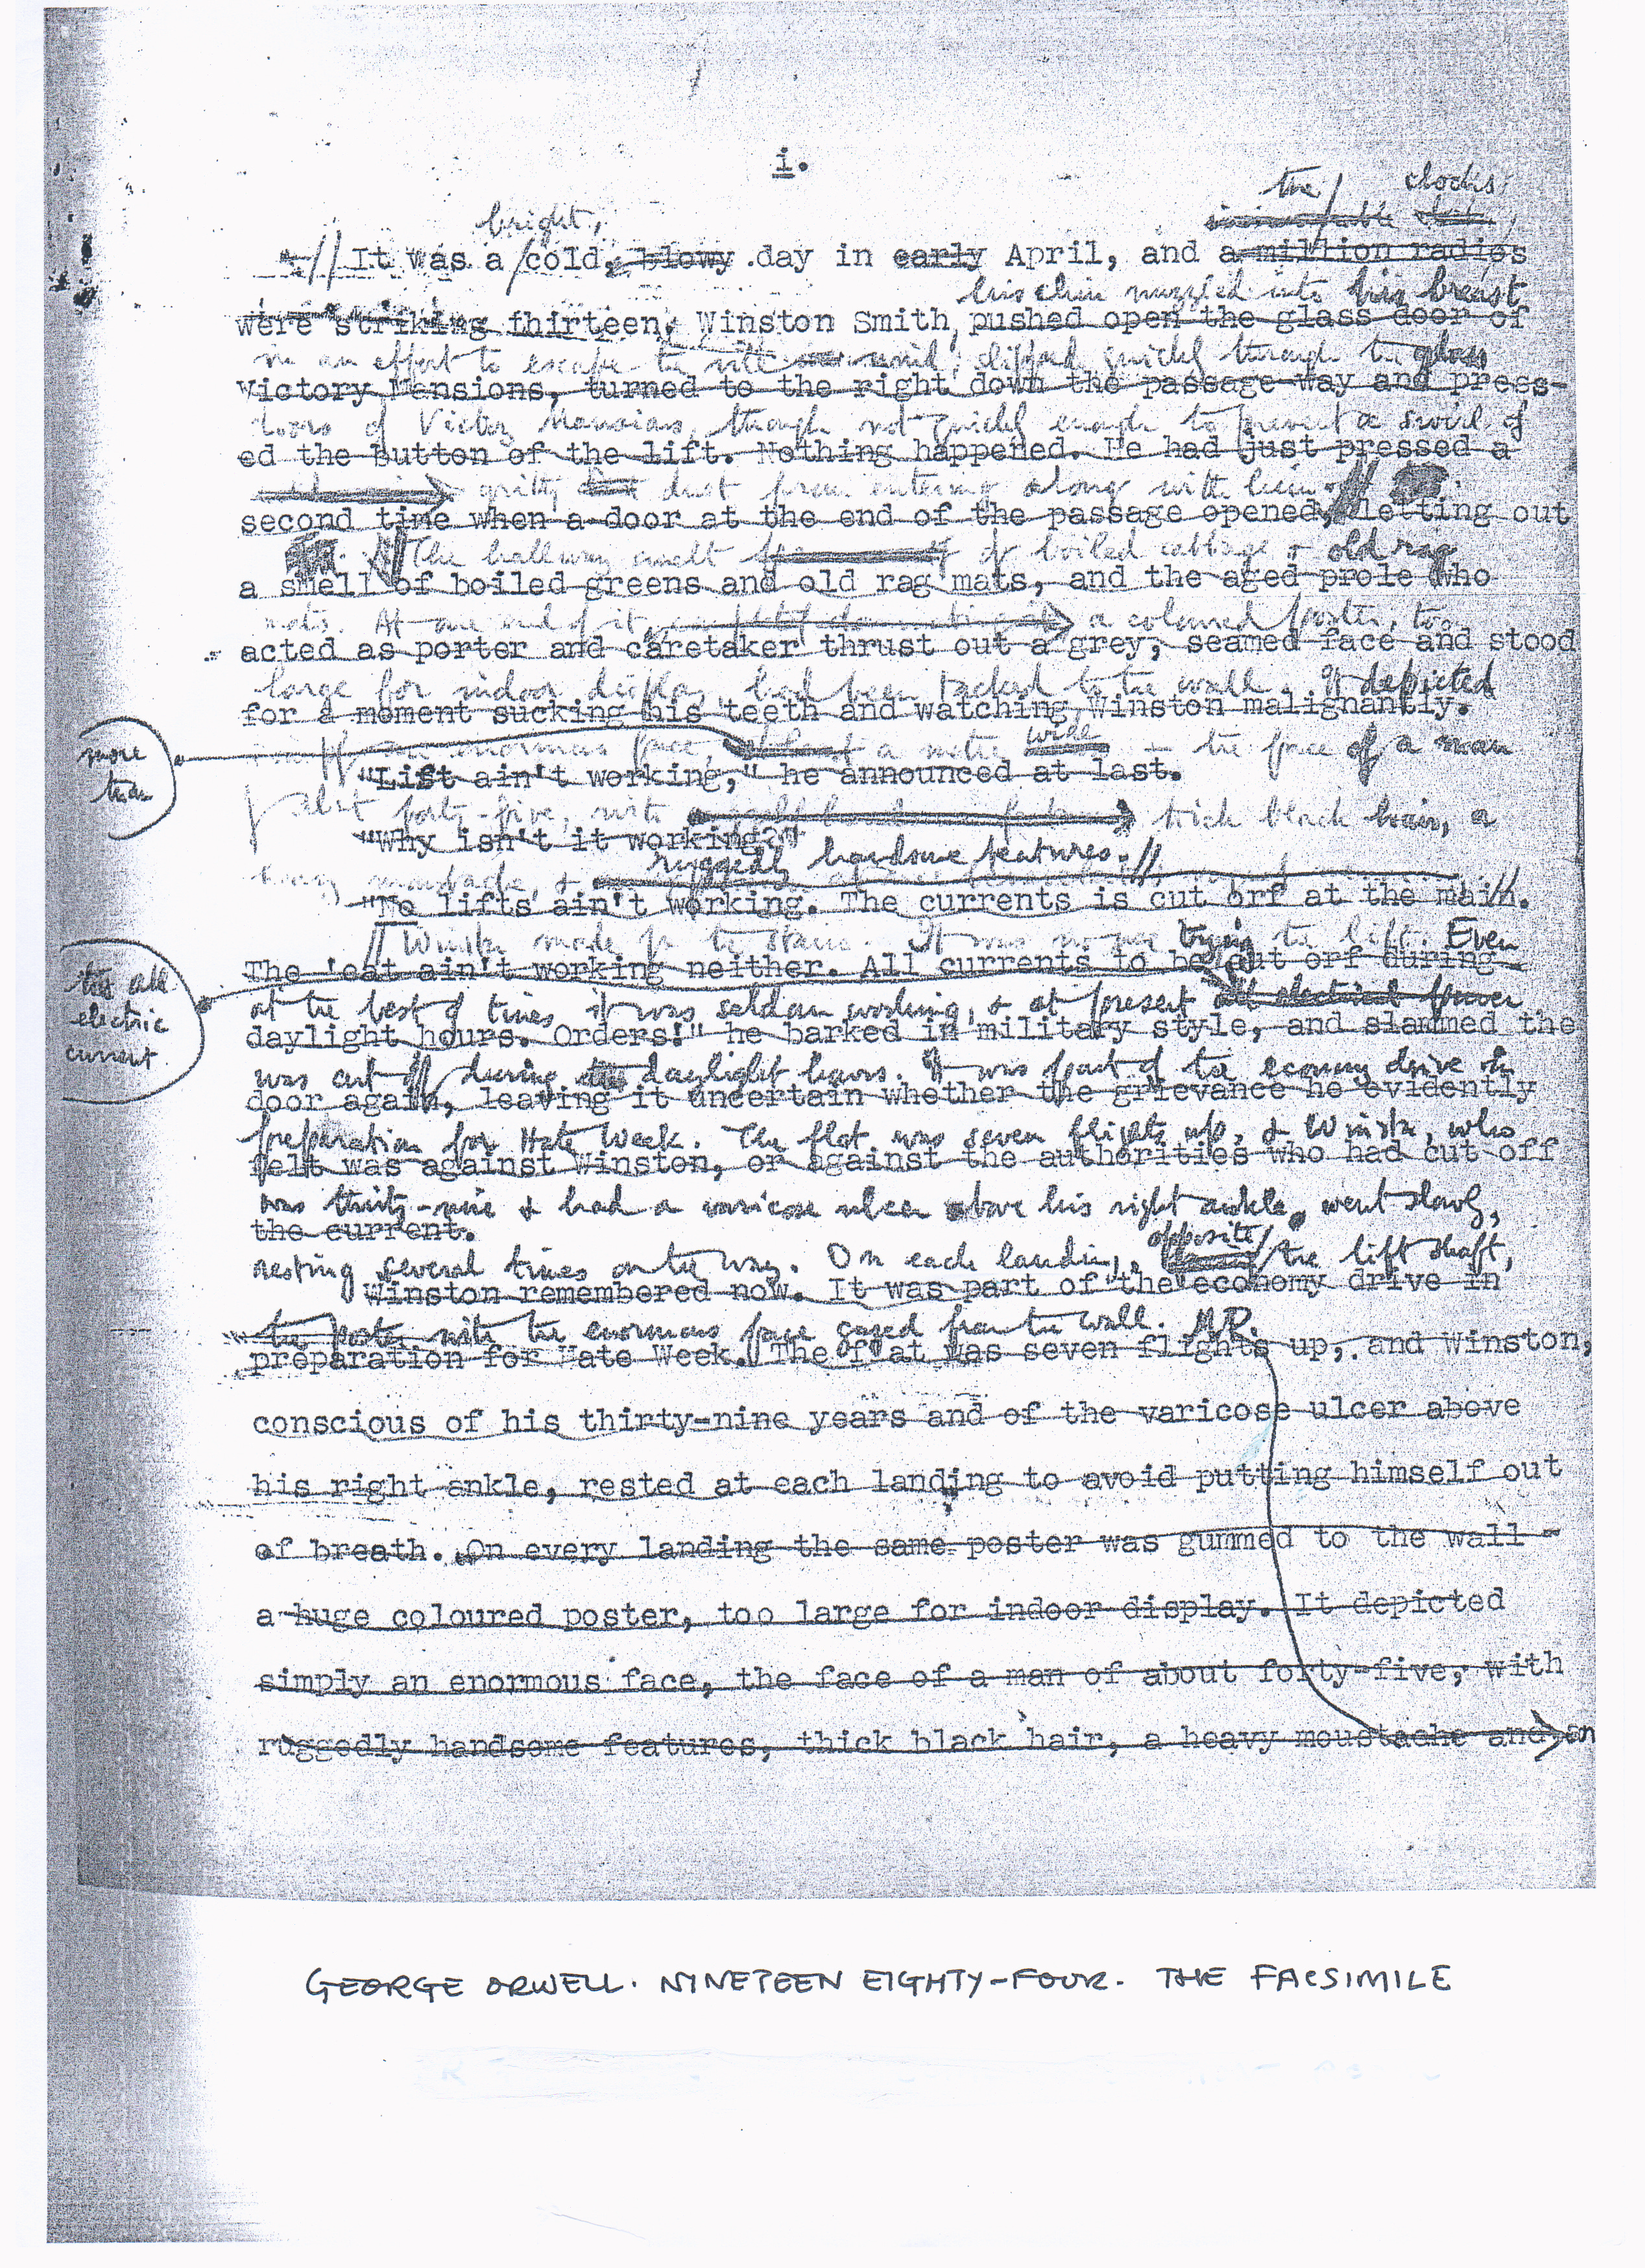 i.
the clocks
bright,
It was a cold, blowy day in early April, and a million radios
his chin nuzzled into his breast
were striking thirteen. Winston Smith, pushed open the glass door of
in an effort to escape the vile wind, slipped quickly through the glass
Victory Mansions, turned to the right down the passage-way and press-
doors of Victory Mansions, though not quickly enough to prevent a swirl of
ed the button of the lift. Nothing happened. He had just pressed a
gritty dust from entering along with him.
second time when a door at the end of the passage opened, letting out
The hallway smelt of boiled cabbage & old rag
a smell of boiled greens and old rag mats, and the aged prole who
mats. At one end of it a coloured poster, too
acted as porter and caretaker thrust out a grey, seamed face and stood
large for indoor display, had been tacked to the wall. It depicted
for a moment sucking his teeth and watching Winston malignantly.
more
than
enormous face, a metre wide - the face of a man
"Lift ain't working," he announced at last.
of about forty-five, with thick black hair, a
"Why isn't it working?"
ruggedly handsome features.
heavy moustache, &
"No lifts ain't working. The currents is cut orf at the main.
Winston made for the stairs. It was no use trying the lift. Even
The 'eat ain't working neither. All currents to be cut orf during
the
electric
current.
at the best of times it was seldom working, & at present all electrical power
daylight hours. Orders!" he barked in military style, and slammed the
was cut off during daylight hours. It was part of the economy drive in
door again, leaving it uncertain whether the grievance he evidently
preparation for Hate Week. The flat was seven flights up, & Winston, who
felt was against Winston, or against the authorities who had cut off
was thirty-nine & had a varicose ulcer above his right ankle, went slowly,
the current.
opposite
resting several times on the way. On each landing, the lift shaft,
Winston remembered now. It was part of the economy drive in
the poster with the enormous face gazed from the wall.
preparation for Hate Week. The flat was seven flights up, and Winston,
conscious of his thirty-nine years and of the varicose ulcer above
his right ankle, rested at each landing to avoid putting himself out
of breath. On every landing the same poster was gummed to the wall -
a huge coloured poster, too large for indoor display. It depicted
simply an enormous face, the face of a man of about forty-five, with
ruggedly handsome features, thick black hair, a heavy moustache and an
GEORGE ORWELL. NINETEEN EIGHTY-FOUR. THE FACSIMILE